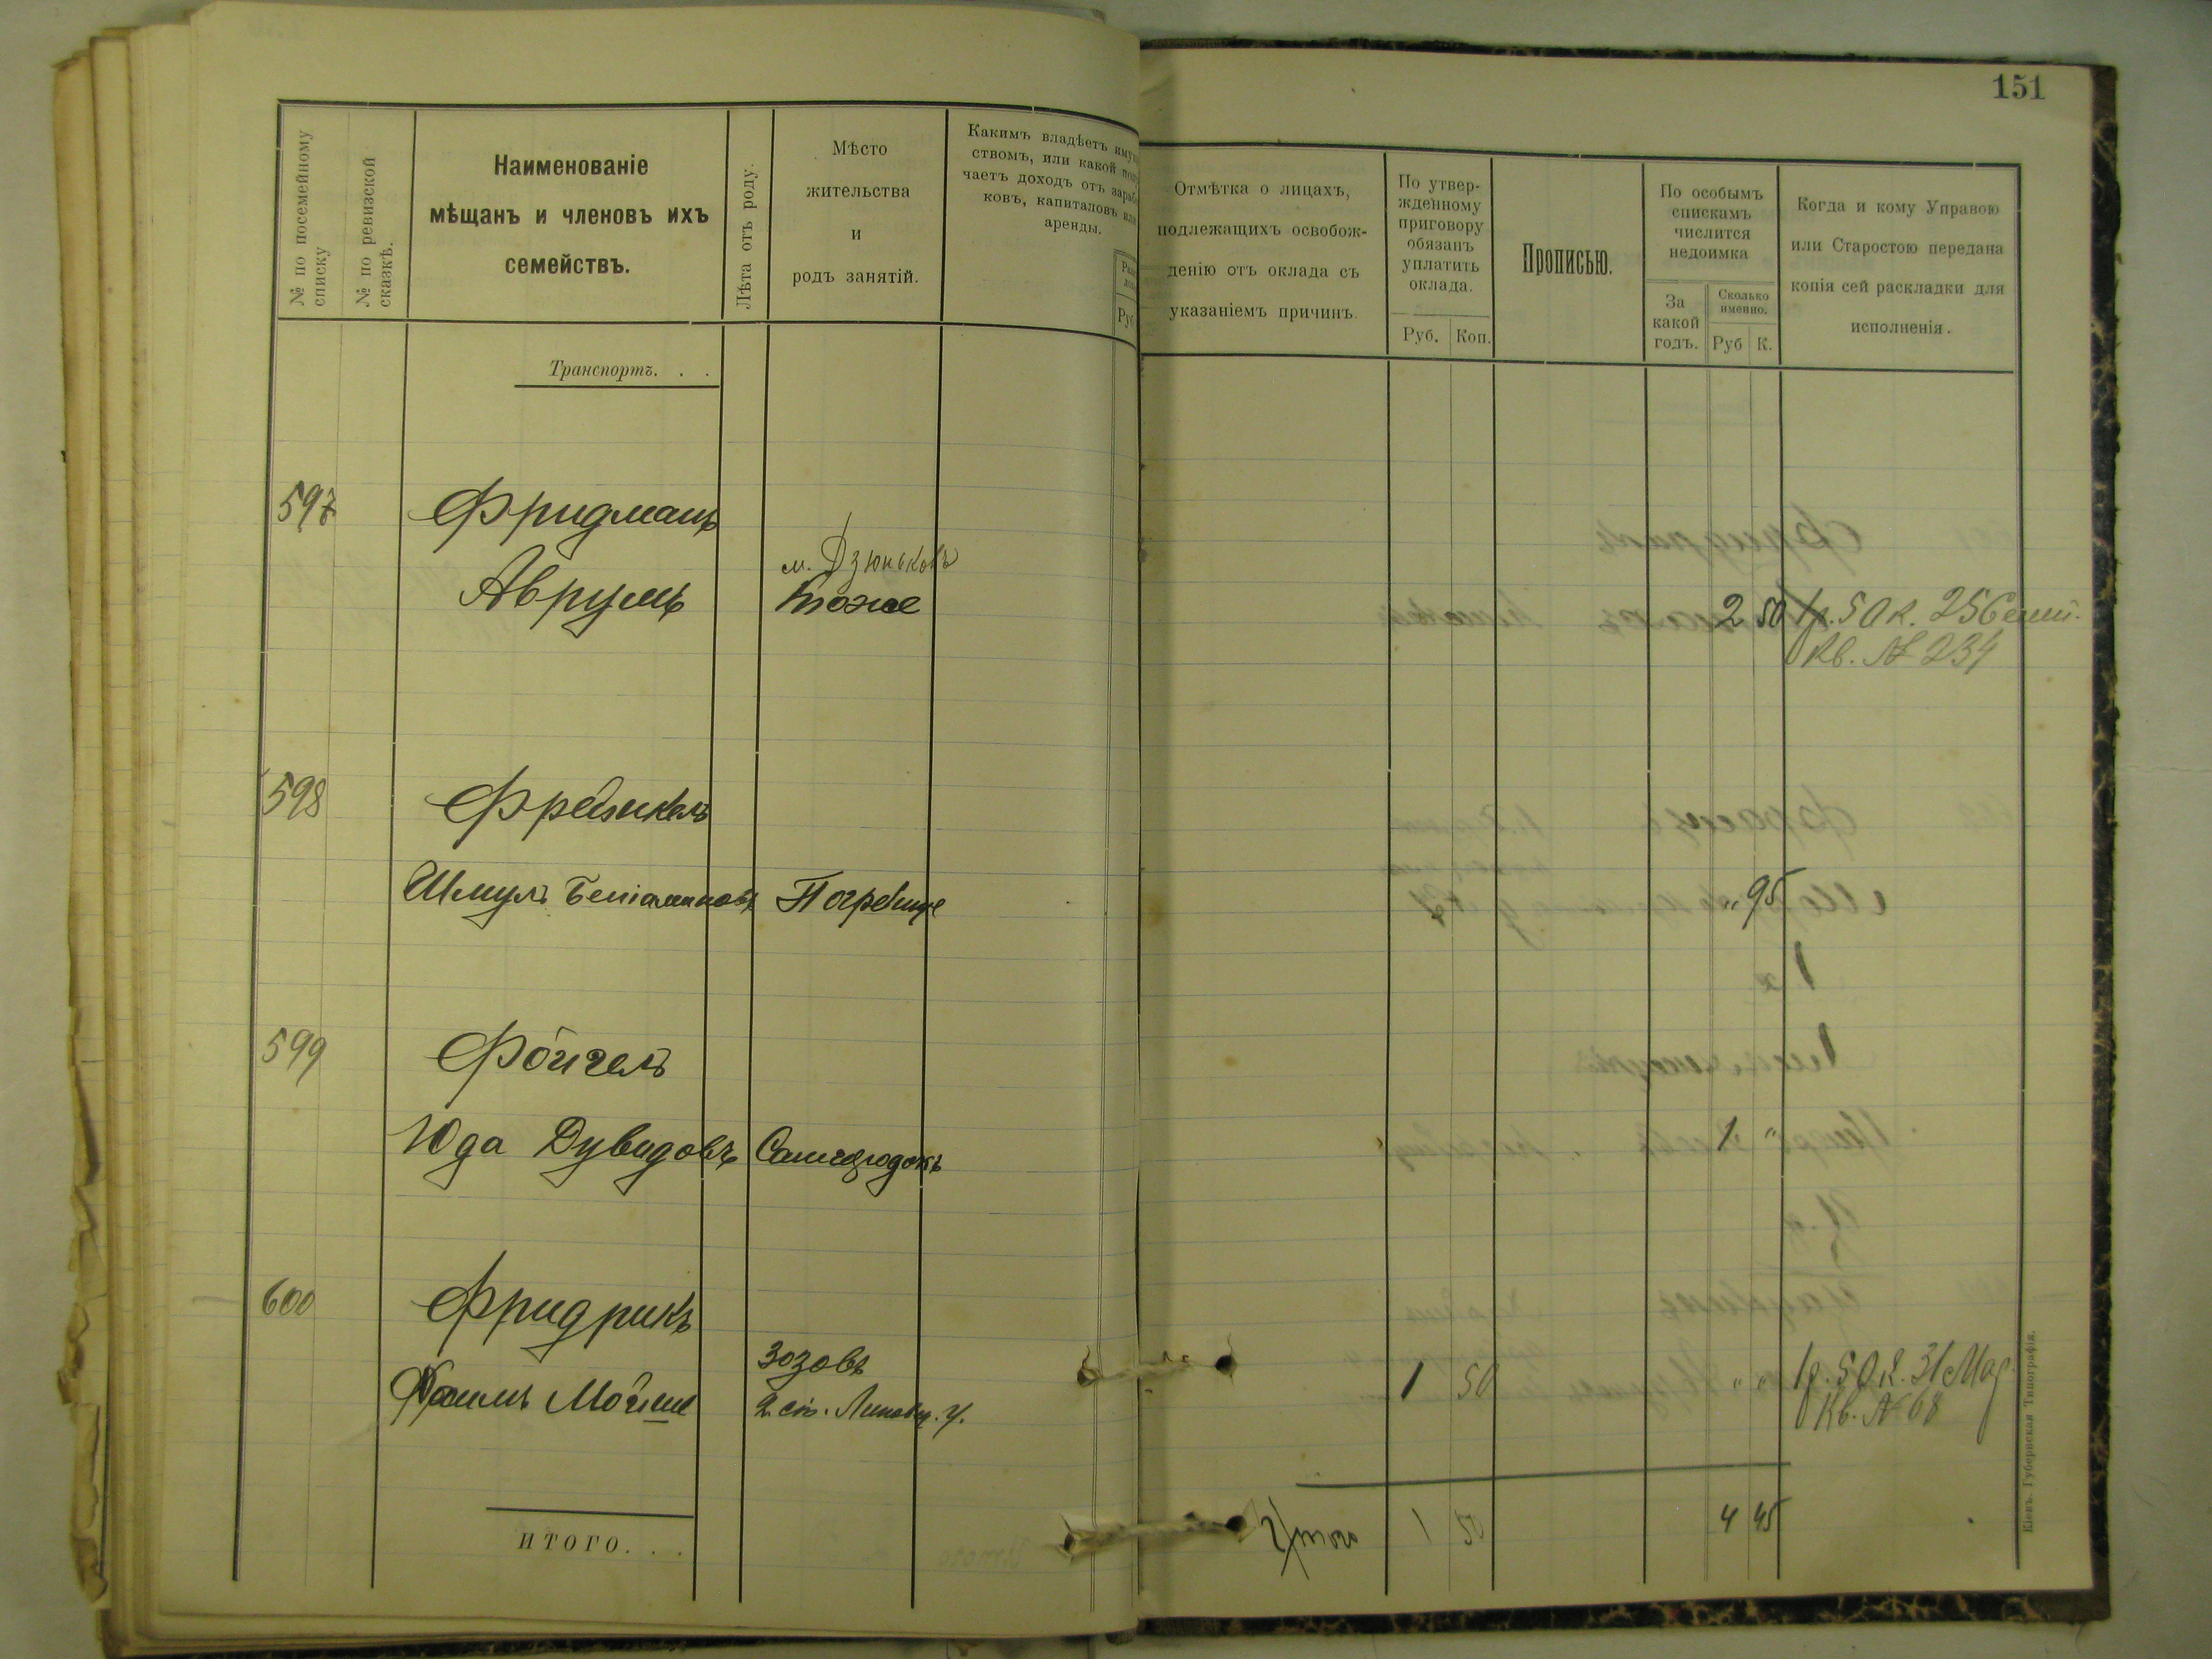 151
№ по посемейному списку
№ по ревизской сказкѣ.
Наименованіе
мѣщанъ и членовъ ихъ
семействъ.
Лѣта отъ роду.
Мѣсто
жительства
и
родъ занятій.
Какимъ владѣетъ
ствомъ, или какой
чаетъ доходъ отъ
ковъ, капиталовъ или
аренды.
Руб
Отмѣтка о лицахъ,
подлежащихъ освобож-
денію отъ оклада съ
указаніемъ причинъ.
По утвер-
жденному
приговору
обязанъ
уплатить
оклада.
Руб. Коп.
Прописью.
По особымъ
спискамъ
числится
недоимка
За
какой
годъ.
Сколько
именно.
Руб К.
Когда и кому Управою
или Старостою передана
копія сей раскладки для
исполненія.
Транспортъ. . .
597 Фридманъ
м. Дзюньковъ
Аврумъ тоже 2 50 1р. 50 к. 25
Кв. № 234
598
Шмулъ Беніаминовъ Погребище „ 95
599 Фойгелъ
Юда Дувидовъ Самгородокъ 1 „
600 Фридрикъ
Зозовъ
Хаимъ Мойше 2 ст. Липовец. у. 1 50 „ „ 1р. 50 к. 31 Мая
Кв. № 68
ИТОГО. . .
Итого 1 50 4 45
Кіевъ. Губернская Типографія.